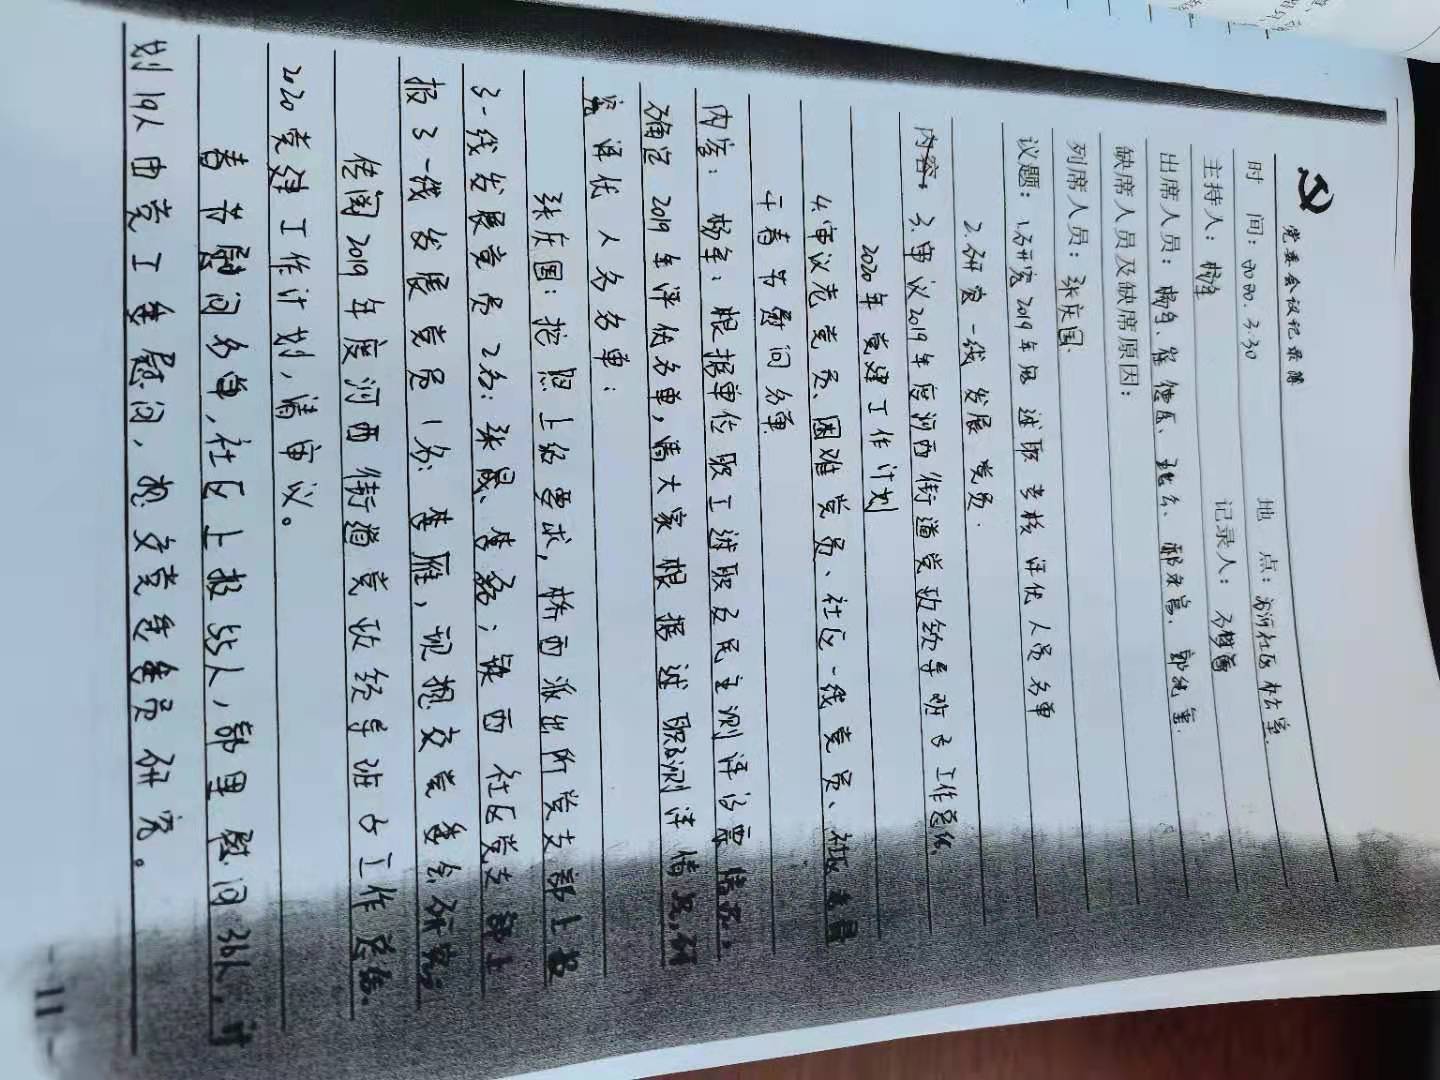 党委会议记录簿
时 间：2020.3.30 地 点：汾河社区办公室
主持人：杨 记录人：
出席人员：杨
缺席人员及缺席原因：
列席人员：张庆国.
议题：1.研究2019年 述职考核 评优人员名单
2.研究一线发展党员.
内容：3.审议2019年度河西街道党政领导班子工作总结、
2020年党建工作计划
4.审议老党员、困难党员、社区一线党员、
春节慰问名单
内容：杨：根据单位职工述职及民主测评得票情况，
确定2019年评优名单，请大家根据述职及测评情况，研
究评优人名名单：
张庆国：按照上级要求，桥西派出所党支部上报
3-线发展党员2名：张晟、李 ；铁西社区党支部上
报3一线发展党员1名：李雁，现提交党委会研究；
传阅2019年度河西街道党政领导班子工作总结、
2020党建工作计划，请审议。
春节慰问名单，社区上报55人， 里慰问36人，计
划19人由党工委慰问，提交党委委员研究。
-11-